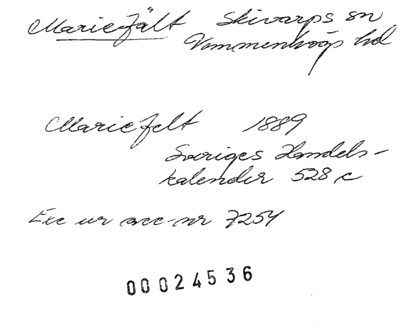 Mariefält Skivarps sn
Vemmenhögs hd
Mariefelt 1889
Sveriges Handels-
kalender 528 c
Exc ur acc-nr 7254
00024536